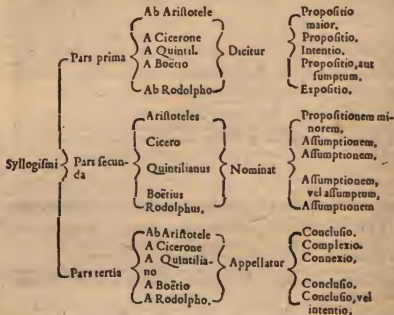 Syllogiſmi
Pars prima
Ab Ariſtotele
A Cicerone
A Quintil.
A Boëtio
Ab Rodolpho
Dicitur
Propoſitio
maior.
Propoſitio.
Intentio.
Propoſitio, aut
ſumptum.
Expoſitio.
Pars ſecun-
da
Ariſtoteles
Cicero
Quintilianus
Boëtius
Rodolphus.
Nominat
Propoſitionem mi-
norem.
Aſſumptionem,
Aſſumptionem.
Aſſumptionem,
vel aſſumptum,
Aſſumptionem
Pars tertia
Ab Ariſtotele
A Cicerone
A Quintilia-
no
A Boëtio
A Rodolpho.
Appellatur
Concluſio.
Complexio.
Connexio,
Concluſio.
Concluſio, vel
intentio.